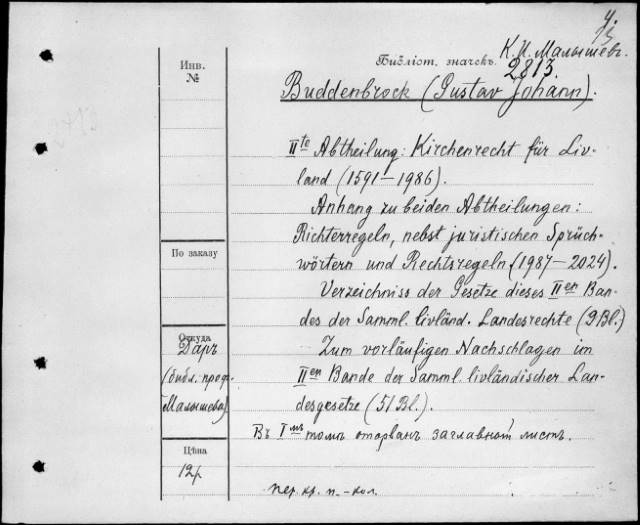 4.
К. И. Малышевъ
Библіот. значекъ
2813.
Инв.
№
Buddenbrock (Gustav Johann).
IIte Abtheilung: Kirchenrecht für Liv-
land (1591—1986).
Anhang zu beiden Abtheilungen:
Richterregeln, nebst juristischen Sprüch-
wörtern und Rechtsregeln (1987—2024).
Verzeichniss der Gesetze dieses IIen Ban-
des der Samml. livländ. Landesrechte (9 Bl.)
Zum vorläufigen Nachschlagen im
IIen Bande der Samml. livländischer Lan-
desgesetze (51 Bl.).
Въ Iмъ томѣ оторванъ заглавный листъ.
По заказу
Откуда
Даръ
(библ. проф.
Малышева)
Цѣна
12р
пер. кр. п.-кол.